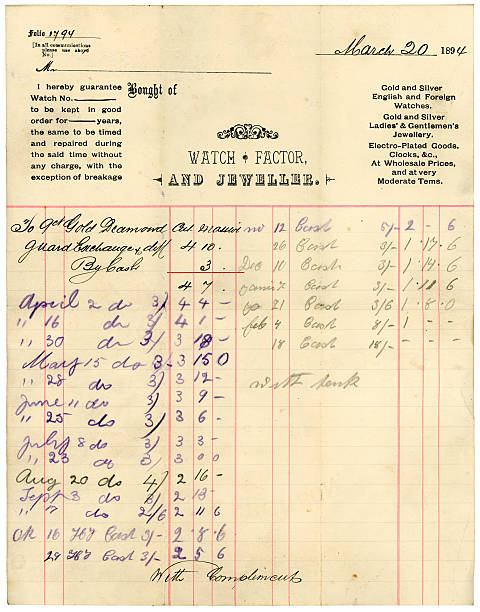 Folio 1794
[In all communications
please use above
No.]
March 20 1894
M
I hereby guarantee
Watch No.
to be kept in good
order for years,
the same to be timed
and repaired during
the said time without
any charge, with the
exception of breakage
Bought of
WATCH FACTOR,
AND JEWELLER.
Gold and Silver
English and Foreign
Watches.
Gold and Silver
Ladies' & Gentlemen's
Jewellery.
Electro-Plated Goods.
Clocks, &c.,
At Wholesale Prices,
and at very
Moderate Tems.
To 9ct Gold Diamond
guard Exchange & diff 4 10.
By Cash 3.
4 7.
April 2 do 3/ 4 4 -
,, 16 do 3/ 4 1 -
,, 30 do 3/ 3 18 -
May 15 do 3/- 3 15 0
,, 28 do 3/ 3 12 -
June 11 do 3/ 3 9 -
,, 25 do 3/ 3 6 -
July 8 do 3/ 3 3 -
,, 23 do 3/ 3 0 0
Aug 20 do 4/ 2 16 -
Sept 3 do 3/ 2 13 -
,, 17 do 2/6 2 11 6
16 Cash 3/- 2 . 8 . 6
29 Cash 3/- 2 5 6
12 Cash 5/- 2 - 6
26 Cash 3/- 1 . 17 . 6
Dec 10 Cash 3/- 1 . 14 . 6
Cash 1 . 6
21 Cash 3/6 1 . 8 . 0
feb 4 Cash 8/- 1 - -
18 Cash 18/- - -
with
With Compliments